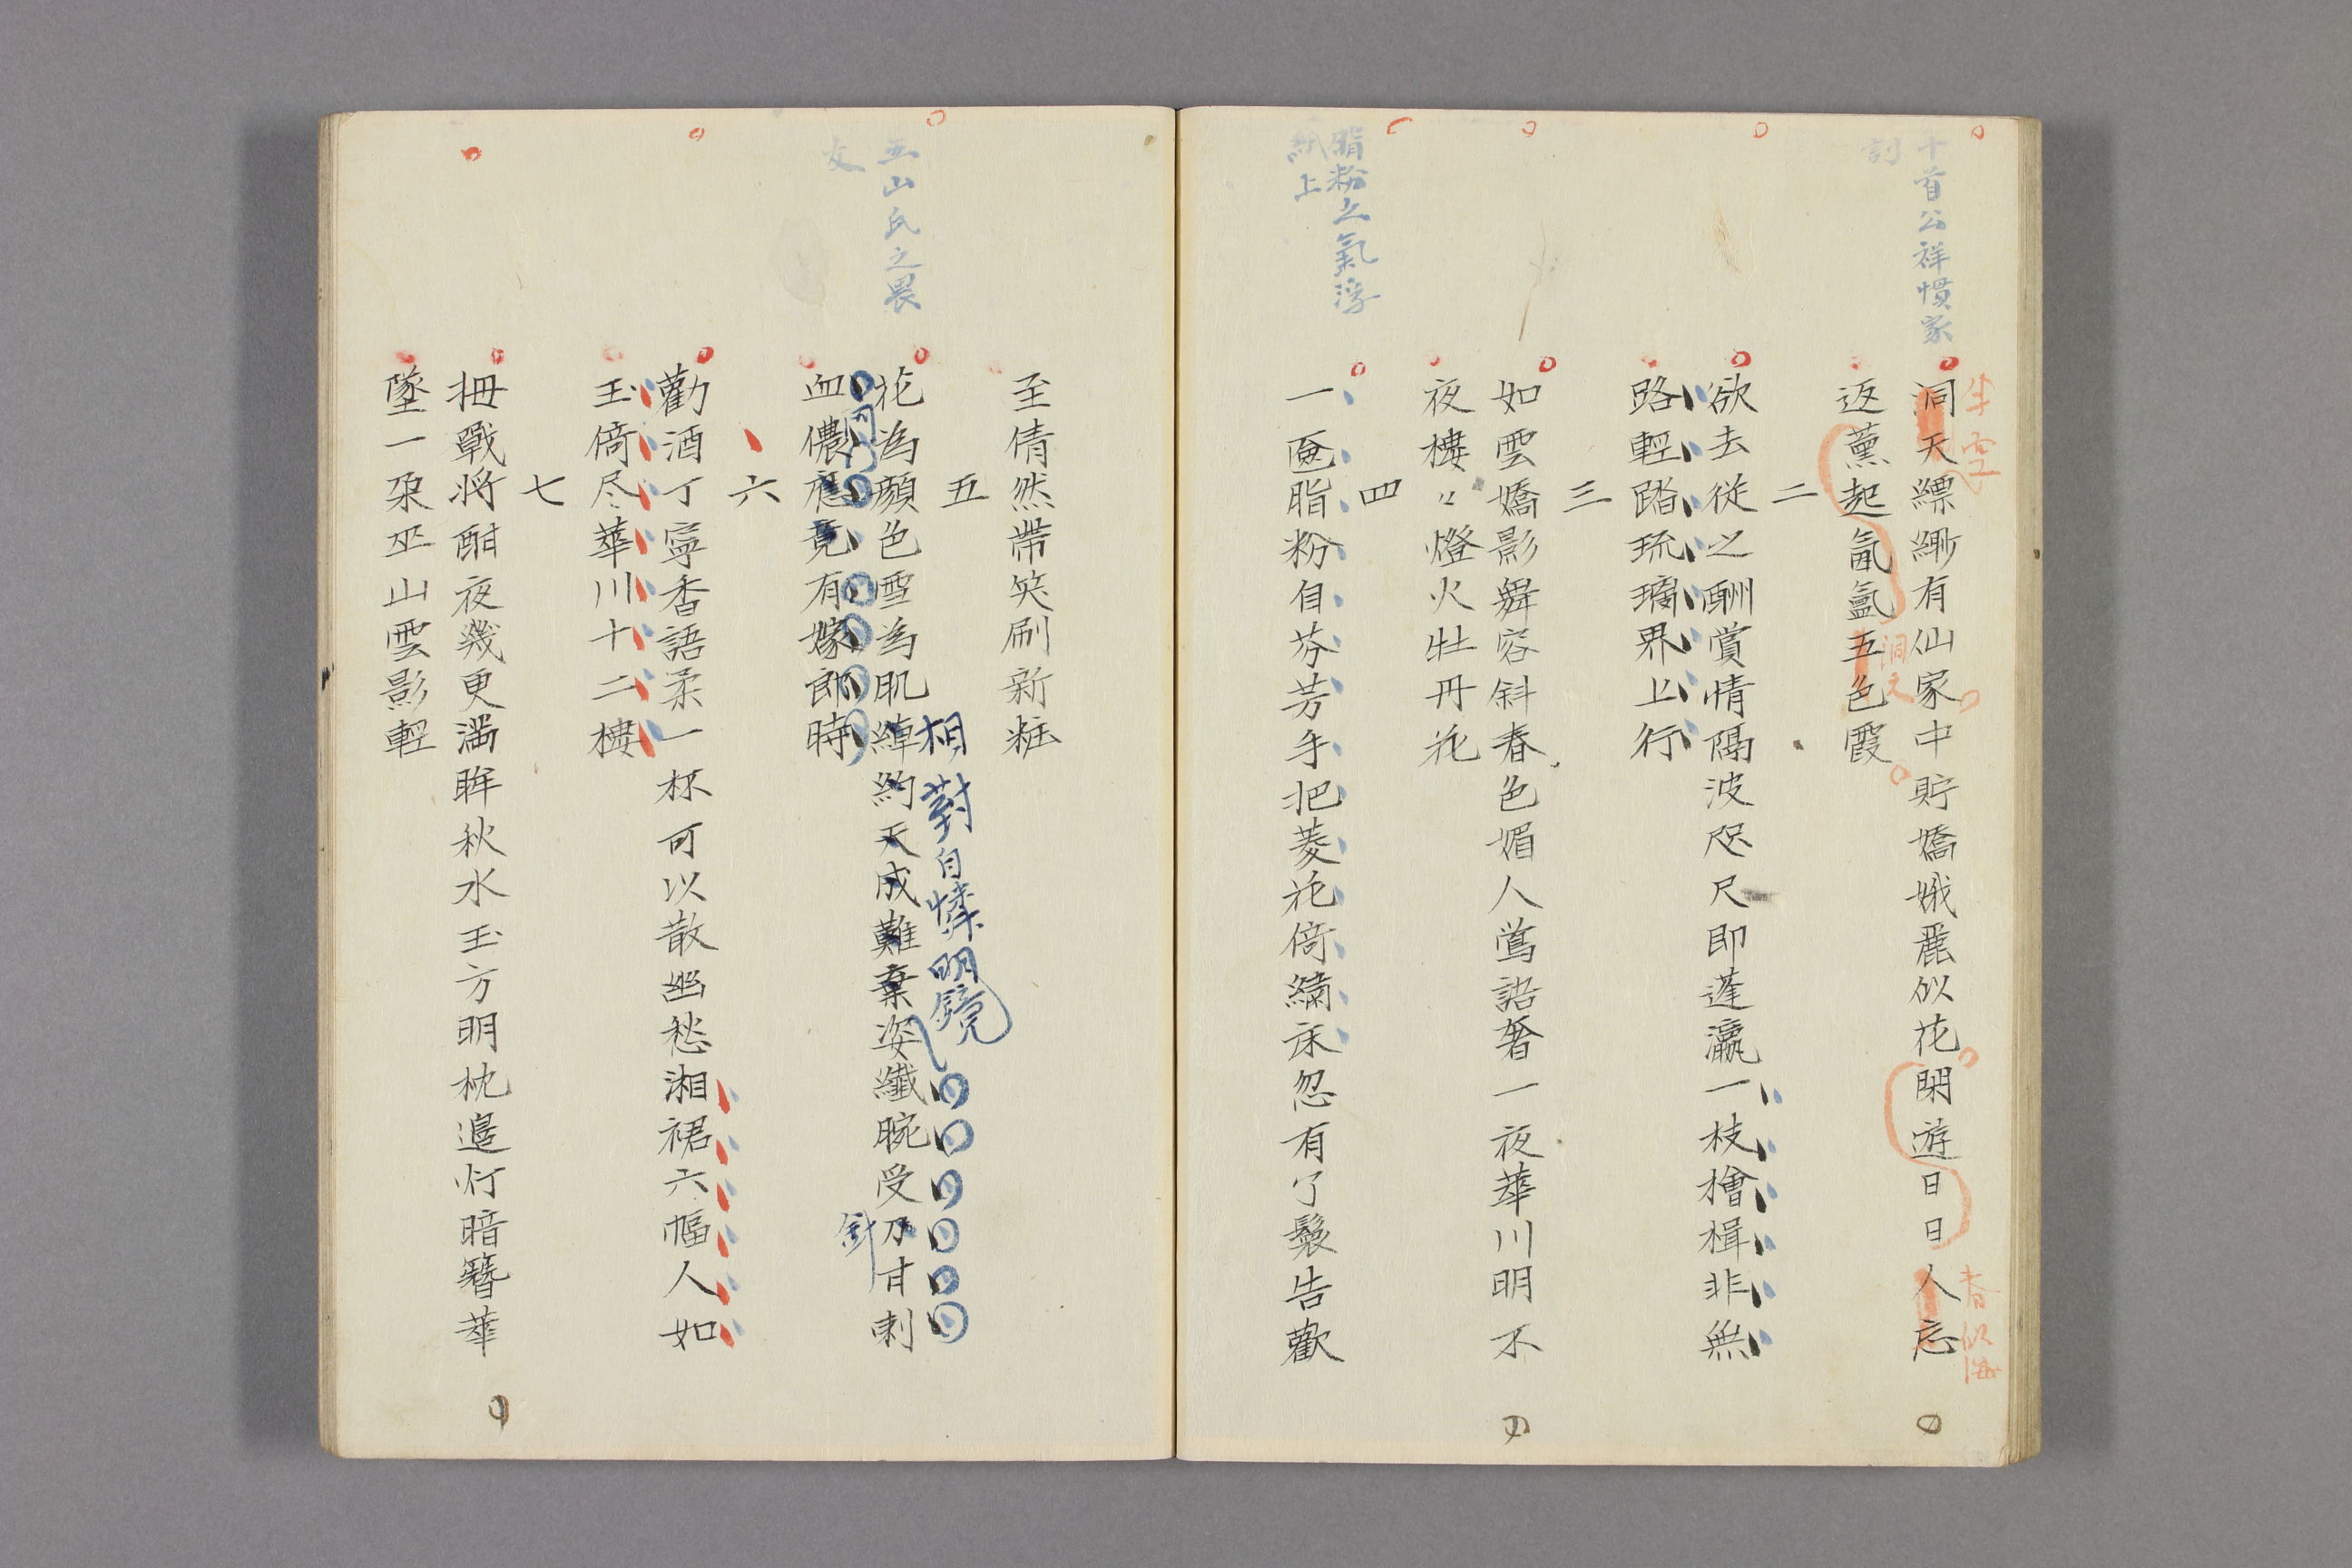 十首公祥慣家
訂
半空
洞天縹緲有仙家中貯嬌娥麗似花閑遊日日人忘
春似海
返薫起氤氳五色霞
洞天
二
欲去從之酬賞情隔波咫尺即蓬瀛一枝檜楫非無
路輕踏琉璃界上行
三
如雲嬌影舞容斜春色媚人鶯語奢一夜華川明不
夜樓〻燈火牡丹花
四
脂粉之氣浮
紙上
一奩脂粉自芬芳手把菱花倚繡床忽有了鬟告歡
至倩然帶笑刷新粧
五
五山氏之畏
友
相對自憐明鏡
花為顔色雪為肌綽約天成難棄姿纖腕受刀甘刺
針
血儂
竟有嫁郎時
六
勸酒丁寧香語柔一杯可以散幽愁湘裙六幅人如
玉倚尽華川十二樓
七
拇戰将酣夜幾更満眸秋水玉方明枕邉灯暗簪華
墜一朶巫山雲影輕